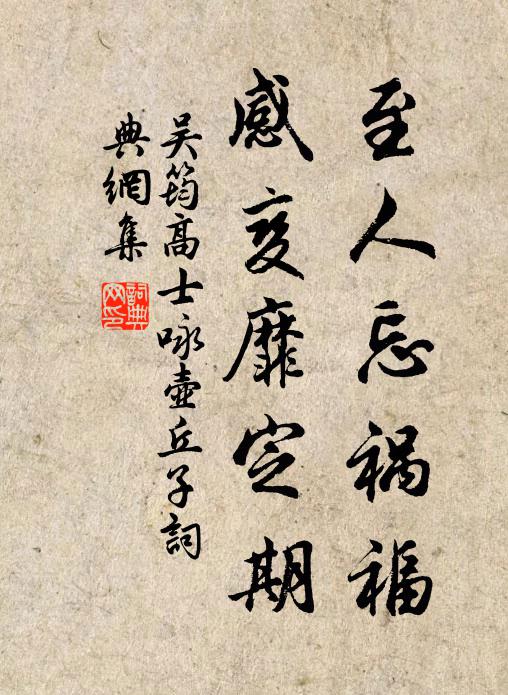 至人忘祸福
感变靡定期
吴筠高士咏壶丘子詞
典網集
詞典
网印